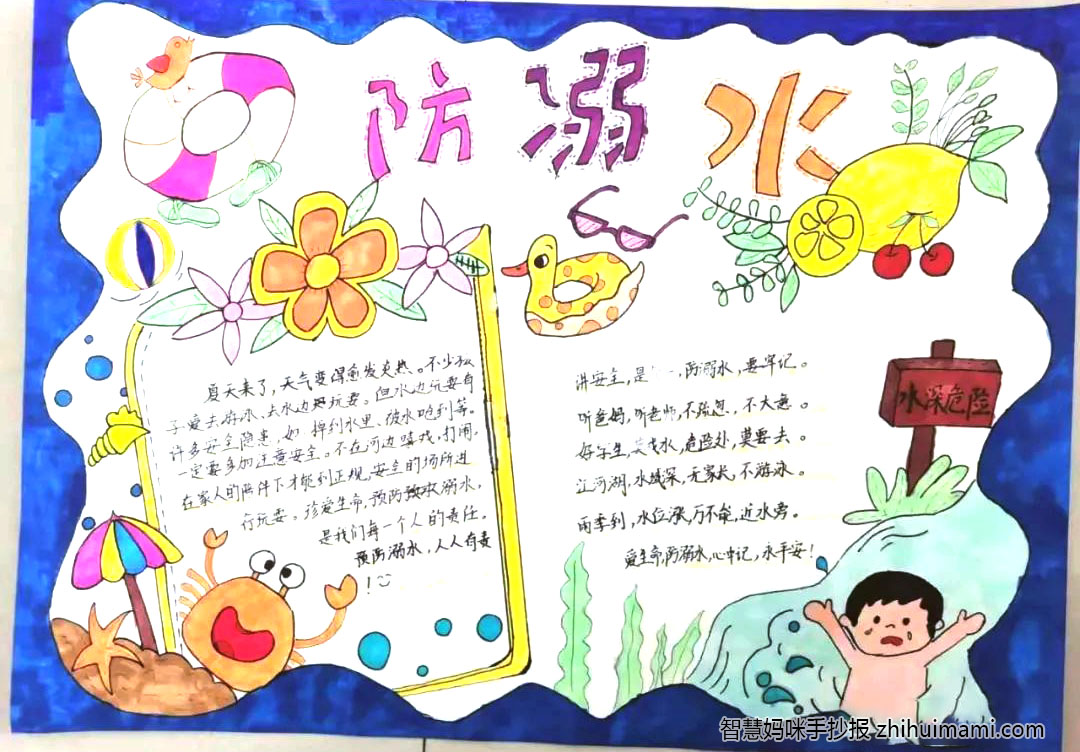 防溺水
夏天来了，天气变得愈发炎热。不少孩
子爱去游水、去水边玩耍。但水边玩耍有
许多安全隐患，如：掉到水里、被水呛到等。
一定要多加注意安全。不在河边嬉戏，打闹。
在家人的陪伴下才能到正规，安全的场所进
行玩耍。珍爱生命，预防溺水，
是我们每一个人的责任。
预防溺水，人人有责
！
讲安全，是，防溺水，要牢记。
听爸妈，听老师，不疏忽，不大意。
好学生，水，危险处，莫要去。
江河湖，水域深，无家长，不游泳。
雨季到，水位涨，万不能，近水旁。
爱生命，防溺水，心中记，永平安！
水深危险
智慧妈咪手抄报 zhihuimami.com